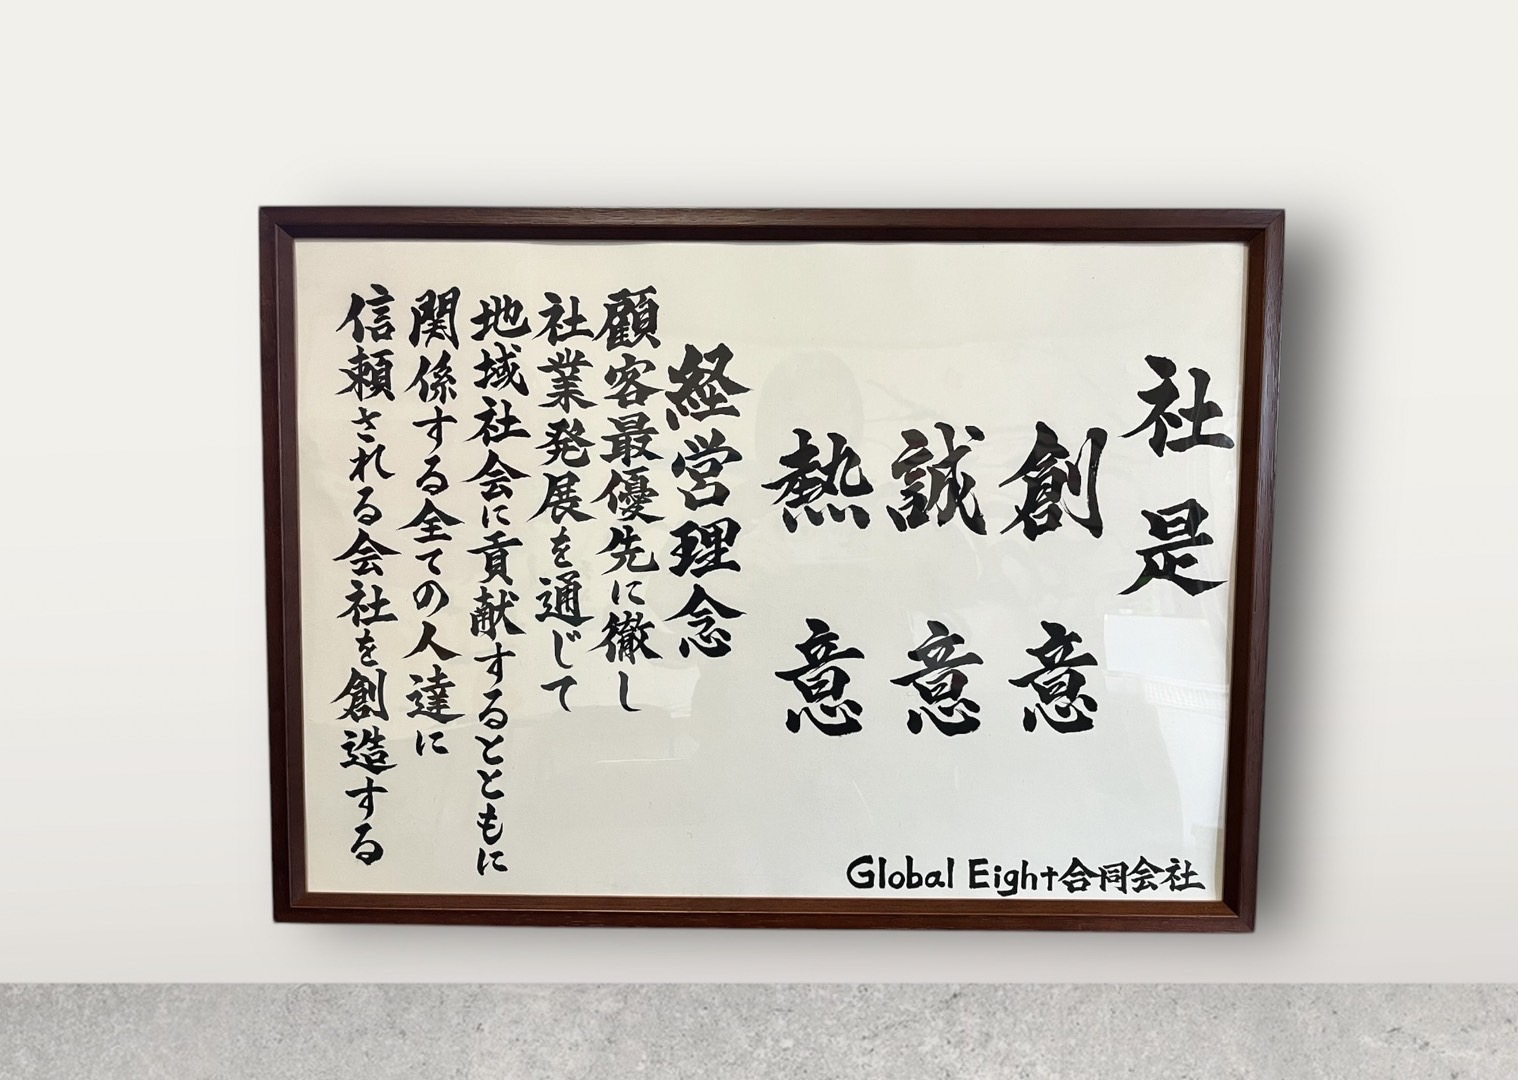 社是
創意
誠意
熱意
経営理念
顧客最優先に徹し
社業発展を通じて
地域社会に貢献するとともに
関係する全ての人達に
信頼される会社を創造する
Global Eight合同会社